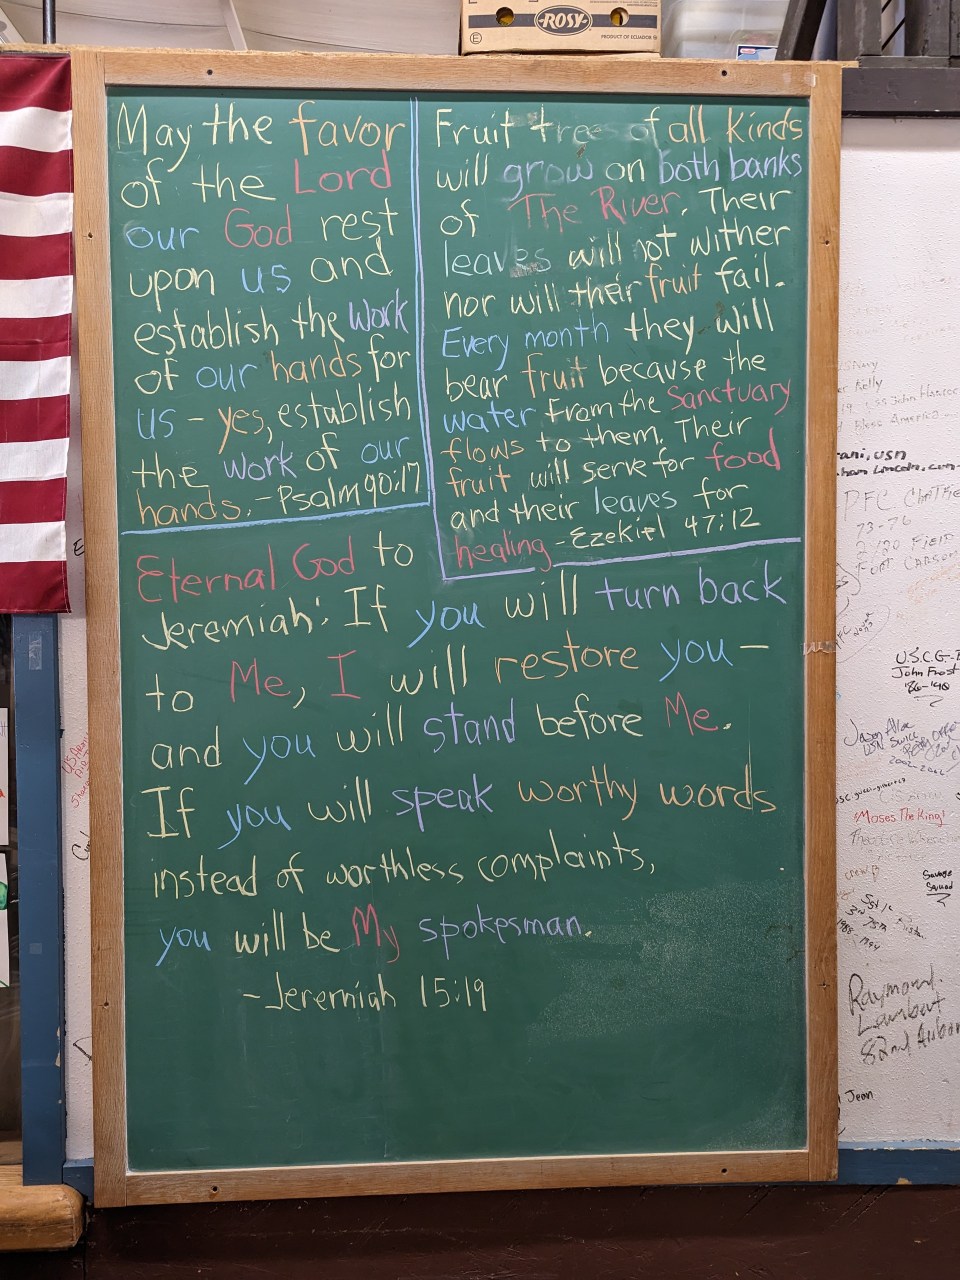 -ROSY-
PRODUCT OF ECUADOR
May the favor
of the Lord
our God rest
upon us and
establish the work
of our hands for
us - yes, establish
the work of our
hands. - Psalm 90:17
Fruit trees of all kinds
will grow on both banks
of The River. Their
leaves will not wither
nor will their fruit fail.
Every month they will
bear fruit because the
water from the Sanctuary
flows to them. Their
fruit will serve for food
and their leaves for
healing - Ezekiel 47:12
Eternal God to
Jeremiah: If you will turn back
to Me, I will restore you —
and you will stand before Me.
If you will speak worthy words
instead of worthless complaints,
you will be My spokesman.
- Jeremiah 15:19
Kelly
USS John Hancoc
Bless America
rani, USN
ham Lincoln, CVN-
PFC
73-76
2/20 FIELD
FORT CARSON
U.S.C.G-
John Frost
'86-'90
Jason
USN
2002-2006
"Moses The King"
Savage
Squad
1988-1994
Raymond
Lambert
82nd Airbor
Jean